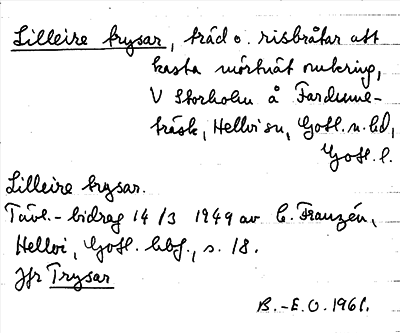 Lilleire trysar, träd o. risbråtar att
kasta mörtnät omkring,
V Storholm å Fardume-
träsk, Hellvi sn, Gotl. n. hd,
Gotl. l.
Lilleire trysar.
Tävl.-bidrag 14/3 1949 av C. Franzén,
Hellvi, Gotl. bbf., s. 18.
Jfr Trysar
B.-E.O. 1961.